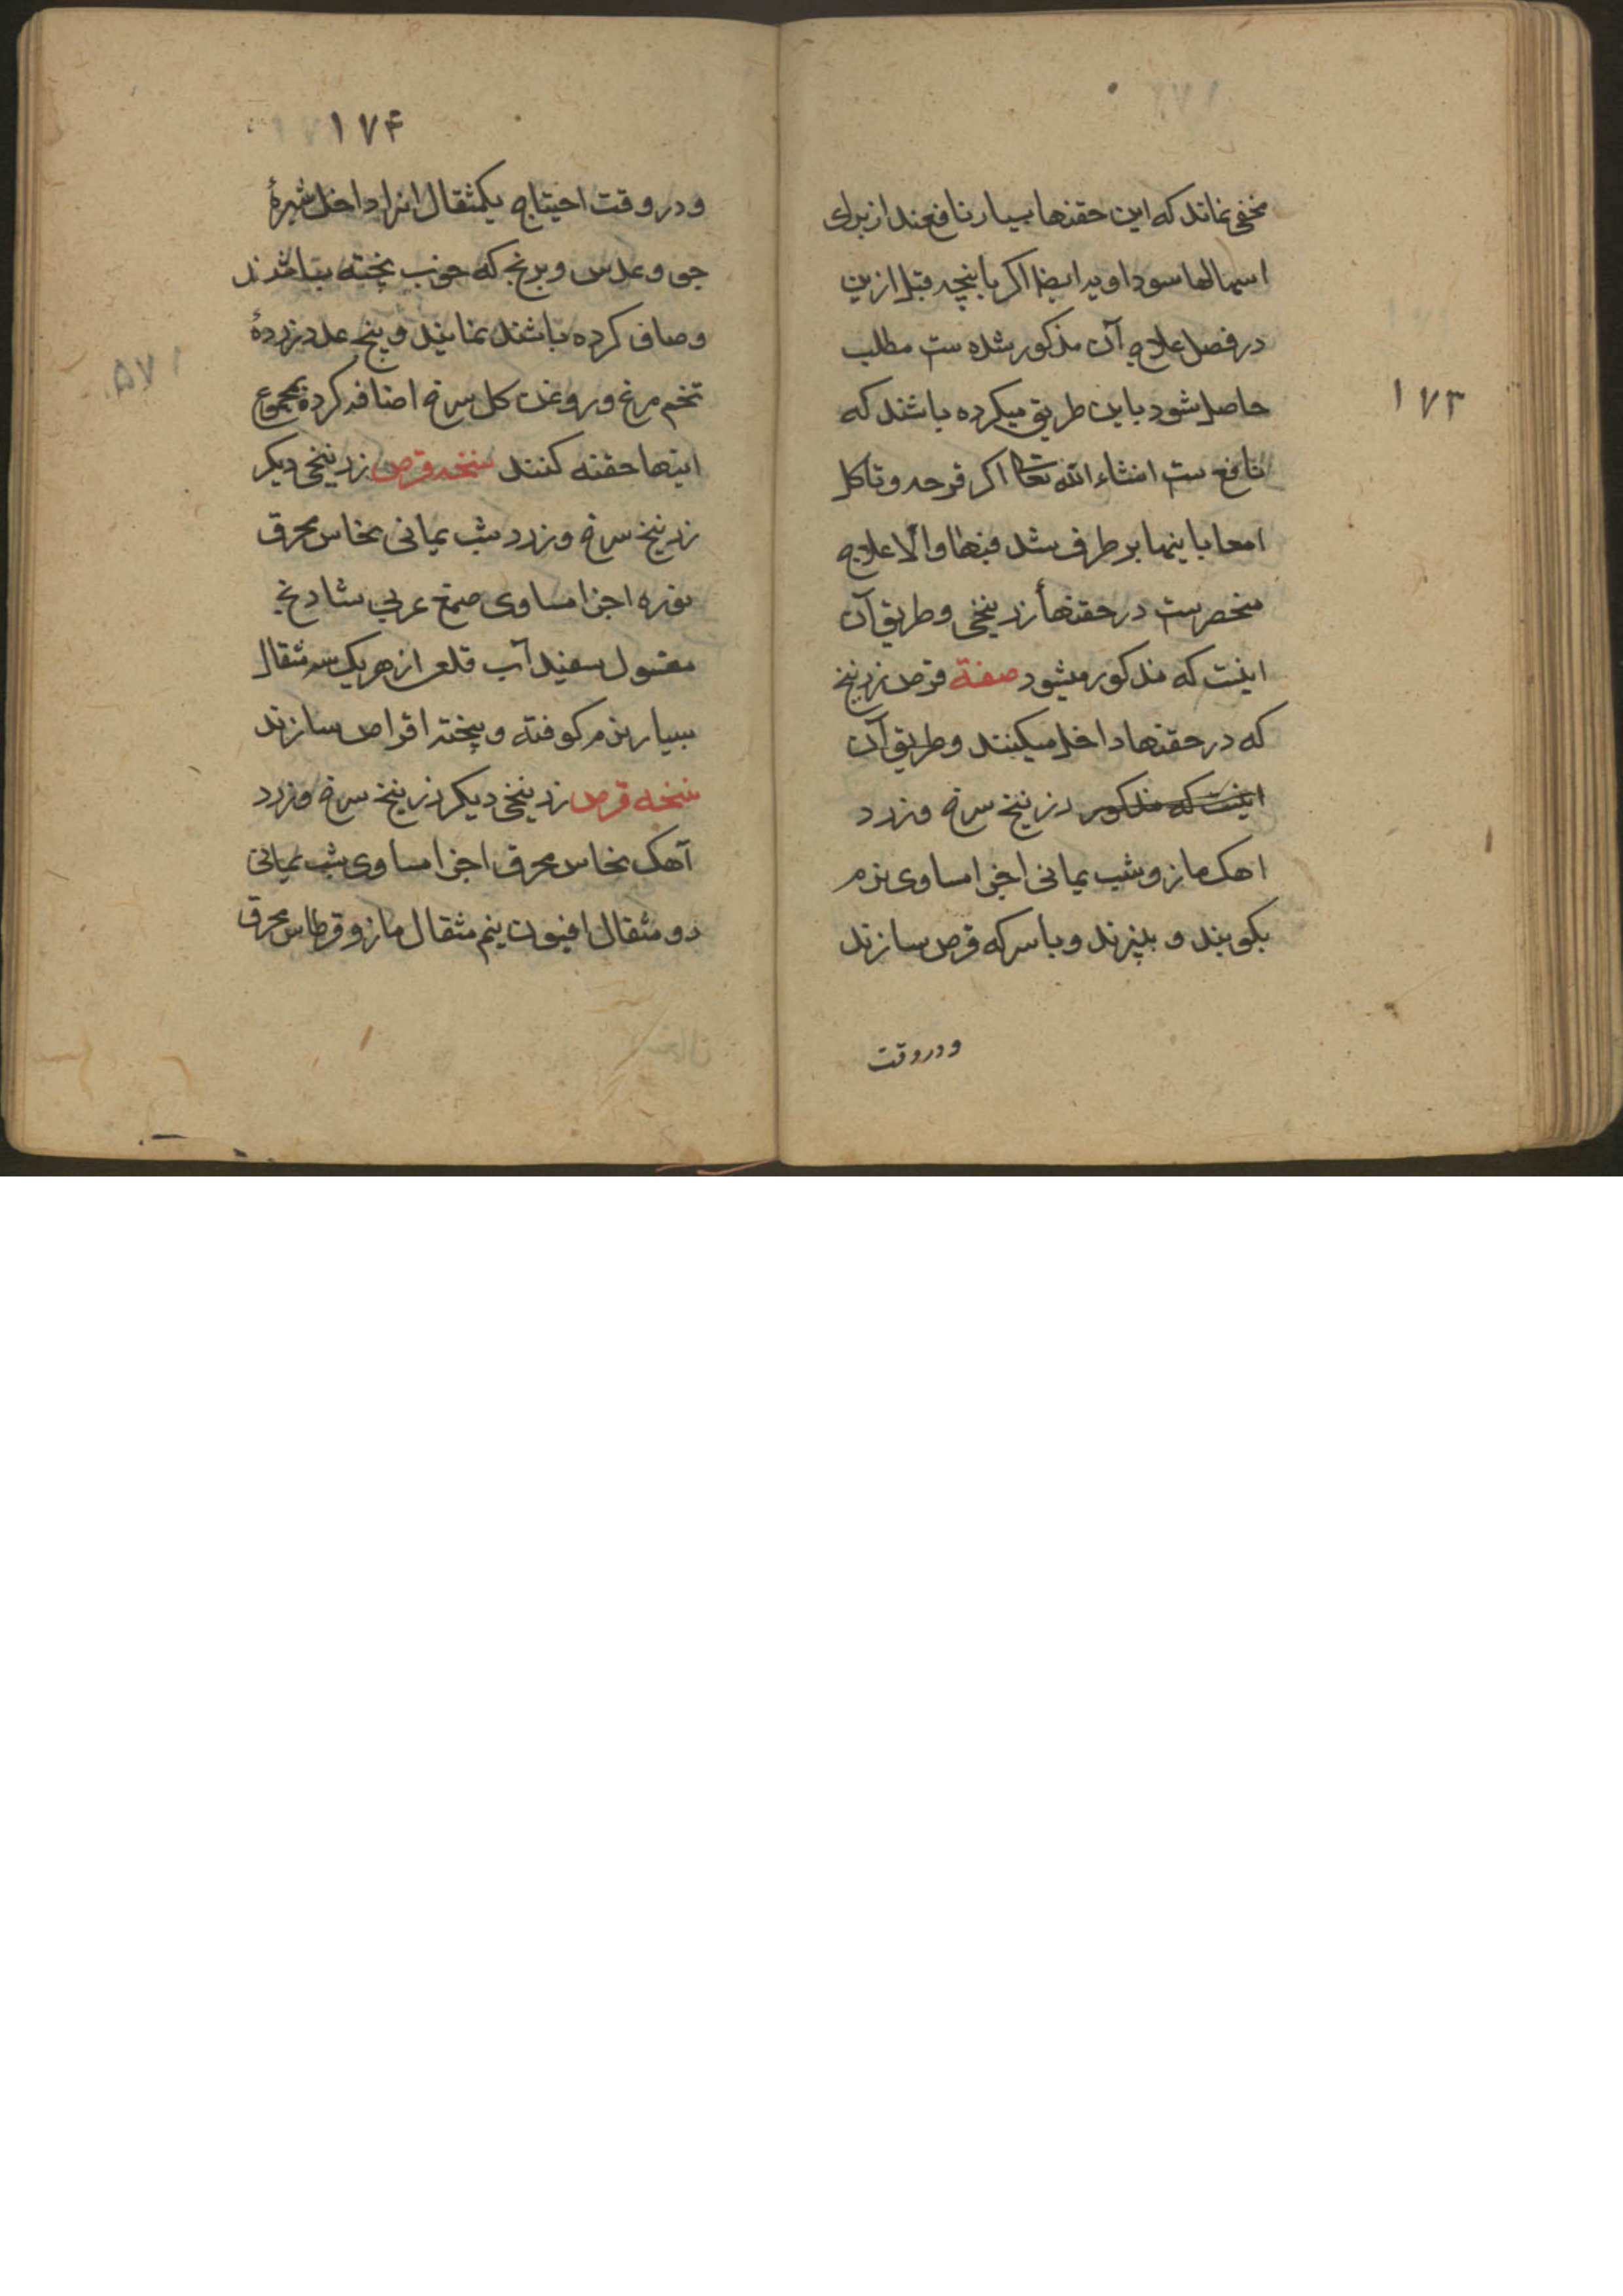 ۱۷۳
مخفی نماند که این حقنها بسیار نافعند از برای
اسهالها سوداویه ایضا اکر بانچه قبل ازین
در فصل علاج آن مذکور شده ست مطلب
حاصل شود باین طریق میکرده باشند که
نافع ست انشاء الله تعا اکر قرحه وتاکل
امعا باینها بر طرف شد فبها والا علاج
منحصرست در حقنهأ زرنیخی وطریق آن
اینست که مذکور میشود صفة قرص زرنیخ
که در حقنها داخل میکنند وطریق آن
اینست که مذکور زرنیخ سرخ وزرد
اهک مازو شب یمانی اجزا مساوی نرم
بکوبند و بپزند وبا سرکه قرص سازند
ودر وقت
۱۷۴
ودر وقت احتیاج یکمثقال انرا داخل شیرهٔ
جو وعدس وبرنج که خوب پخته باشند
وصاف کرده باشند نمایند وپنج عدد زردهٔ
تخم مرغ وروغن کل سرخ اضافه کرده بمجموع
اینها حقنه کنند نسخه قرص زرنیخی دیکر
زرنیخ سرخ وزرد شب یمانی نحاس محرق
نوره اجزا مساوی صمغ عربی شادنج
مغسول سفیدآب قلعی از هریک سه مثقال
بسیار نرم کوفته وپخته اقراص سازند
نسخه قرص زرنیخی دیکر زرنیخ سرخ وزرد
آهک نحاس محرق اجزا مساوی شب یمانی
دو مثقال افیون نیم مثقال مازو قرطاس محرق